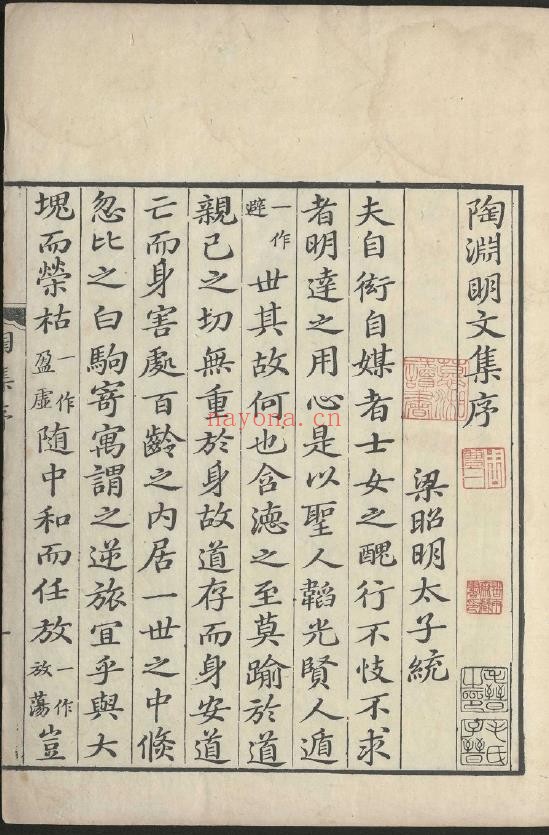 陶淵明文集序
梁昭明太子統
夫自衒自媒者士女之醜行不忮不求
者明達之用心是以聖人韜光賢人遁
一作避世其故何也含德之至莫踰於道
親己之切無重於身故道存而身安道
亡而身害處百齡之內居一世之中倏
忽比之白駒寄寓謂之逆旅宜乎與大
塊而榮枯一作盈虛随中和而任放一作放蕩豈
nayona.cn